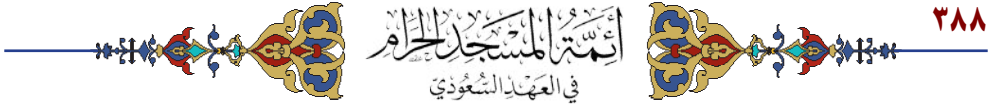 ٣٨٨
أَئِمَّةُ المَسْجِدِ الحَرَامِ
في العَهْدِ السُّعُودِيّ